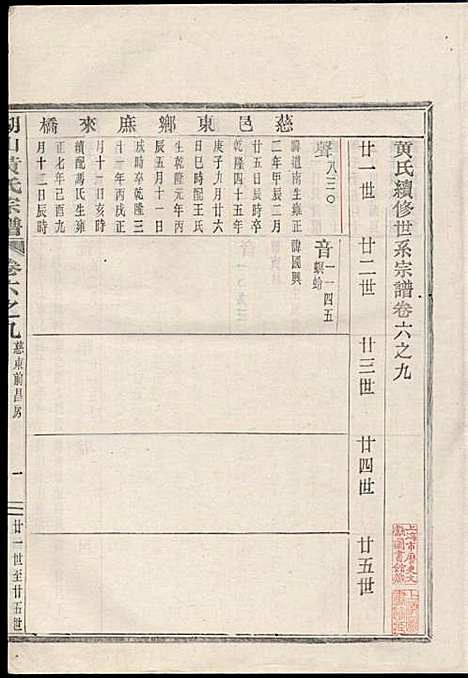 黃氏續修世系宗譜卷六之九
廿一世
廿二世
廿三世
廿四世
廿五世
慈邑東鄉庶來橋
聲八三〇
諱道南生雍正
二年甲辰二月
廿五日辰時卒
乾隆四十五年
庚子九月廿六
日巳時配王氏
生乾隆元年丙
辰五月十一日
戌時卒乾隆三
十一年丙戌正
月十二日亥時
續配馮氏生雍
正七年己酉九
月十三日辰時
音一一四五
諱國興
螟蛉
湖山黃氏宗譜
卷六之九
慈東前昌房
一
廿一世至廿五世
上海市歷史文
獻圖書館藏